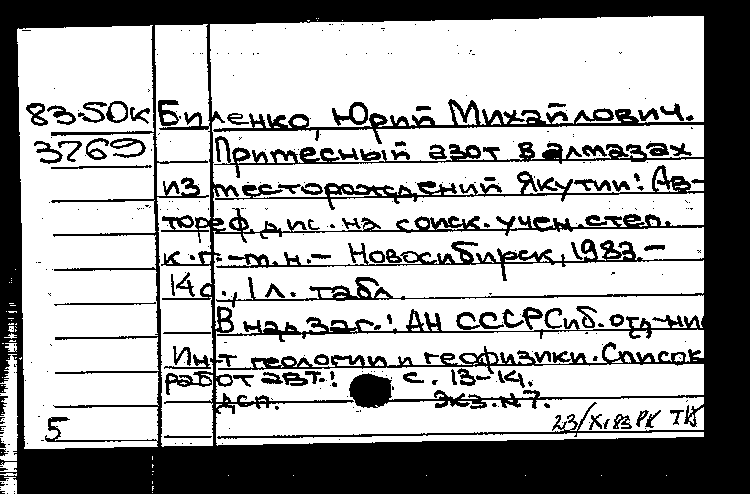 83-50к Биленко, Юрий Михайлович.
3769 Примесный азот в алмазах
из месторождений Якутии: Ав-
тореф. дис. на соиск. учен. степ.
к. г.-м. н. - Новосибирск, 1983. -
14 с., 1 л. табл.
В над. заг.: АН СССР, Сиб. отд-ни
Ин-т геологии и геофизики. Список
работ авт.: с. 13-14.
дсп. Экз. N 7.
5 23/X.83